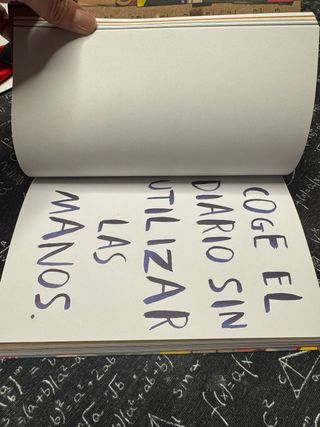 COGE EL
DIARIO SIN
UTILIZAR
LAS
MANOS.